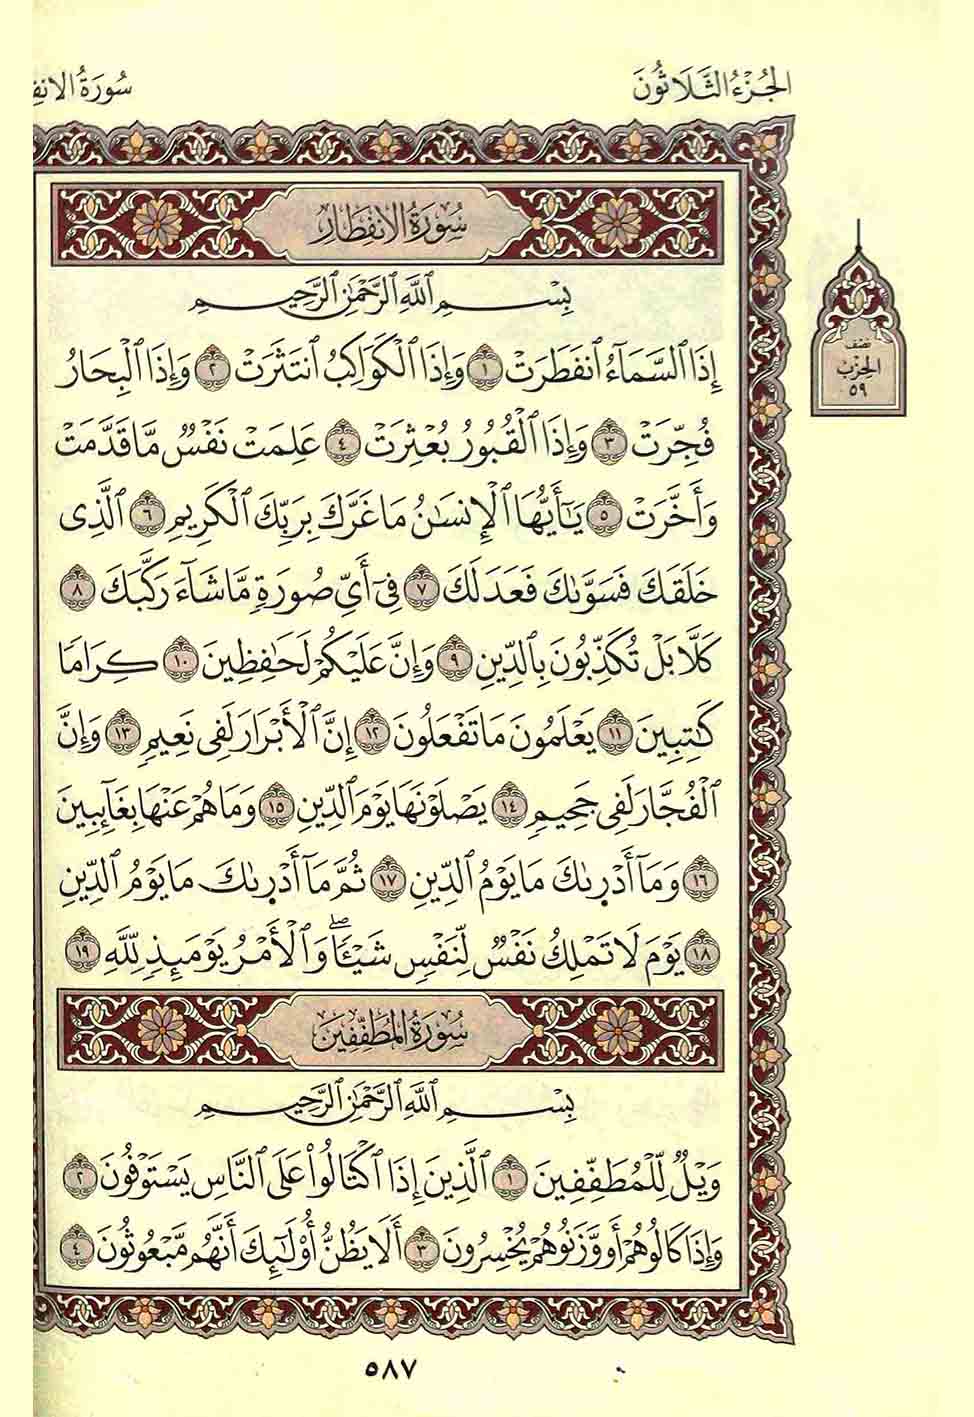 الجُزْءُ الثَّلَاثُونَ
سُورَةُ
سُورَةُ الانفِطَارِ
بِسْمِ ٱللَّهِ ٱلرَّحْمَٰنِ ٱلرَّحِيمِ
إِذَا ٱلسَّمَآءُ ٱنفَطَرَتْ ١ وَإِذَا ٱلْكَوَاكِبُ ٱنتَثَرَتْ ٢ وَإِذَا ٱلْبِحَارُ
نصف
الحِزْب
٥٩
فُجِّرَتْ ٣ وَإِذَا ٱلْقُبُورُ بُعْثِرَتْ ٤ عَلِمَتْ نَفْسٌ مَّا قَدَّمَتْ
وَأَخَّرَتْ ٥ يَٰٓأَيُّهَا ٱلْإِنسَٰنُ مَا غَرَّكَ بِرَبِّكَ ٱلْكَرِيمِ ٦ ٱلَّذِى
خَلَقَكَ فَسَوَّىٰكَ فَعَدَلَكَ ٧ فِىٓ أَىِّ صُورَةٍ مَّا شَآءَ رَكَّبَكَ ٨
كَلَّا بَلْ تُكَذِّبُونَ بِٱلدِّينِ ٩ وَإِنَّ عَلَيْكُمْ لَحَٰفِظِينَ ١٠ كِرَامًا
كَٰتِبِينَ ١١ يَعْلَمُونَ مَا تَفْعَلُونَ ١٢ إِنَّ ٱلْأَبْرَارَ لَفِى نَعِيمٍ ١٣ وَإِنَّ
ٱلْفُجَّارَ لَفِى جَحِيمٍ ١٤ يَصْلَوْنَهَا يَوْمَ ٱلدِّينِ ١٥ وَمَا هُمْ عَنْهَا بِغَآئِبِينَ
١٦ وَمَآ أَدْرَىٰكَ مَا يَوْمُ ٱلدِّينِ ١٧ ثُمَّ مَآ أَدْرَىٰكَ مَا يَوْمُ ٱلدِّينِ
١٨ يَوْمَ لَا تَمْلِكُ نَفْسٌ لِّنَفْسٍ شَيْـًٔا ۖ وَٱلْأَمْرُ يَوْمَئِذٍ لِّلَّهِ ١٩
سُورَةُ المُطَفِّفِينَ
بِسْمِ ٱللَّهِ ٱلرَّحْمَٰنِ ٱلرَّحِيمِ
وَيْلٌ لِّلْمُطَفِّفِينَ ١ ٱلَّذِينَ إِذَا ٱكْتَالُوا۟ عَلَى ٱلنَّاسِ يَسْتَوْفُونَ ٢
وَإِذَا كَالُوهُمْ أَو وَّزَنُوهُمْ يُخْسِرُونَ ٣ أَلَا يَظُنُّ أُو۟لَٰٓئِكَ أَنَّهُم مَّبْعُوثُونَ ٤
٥٨٧